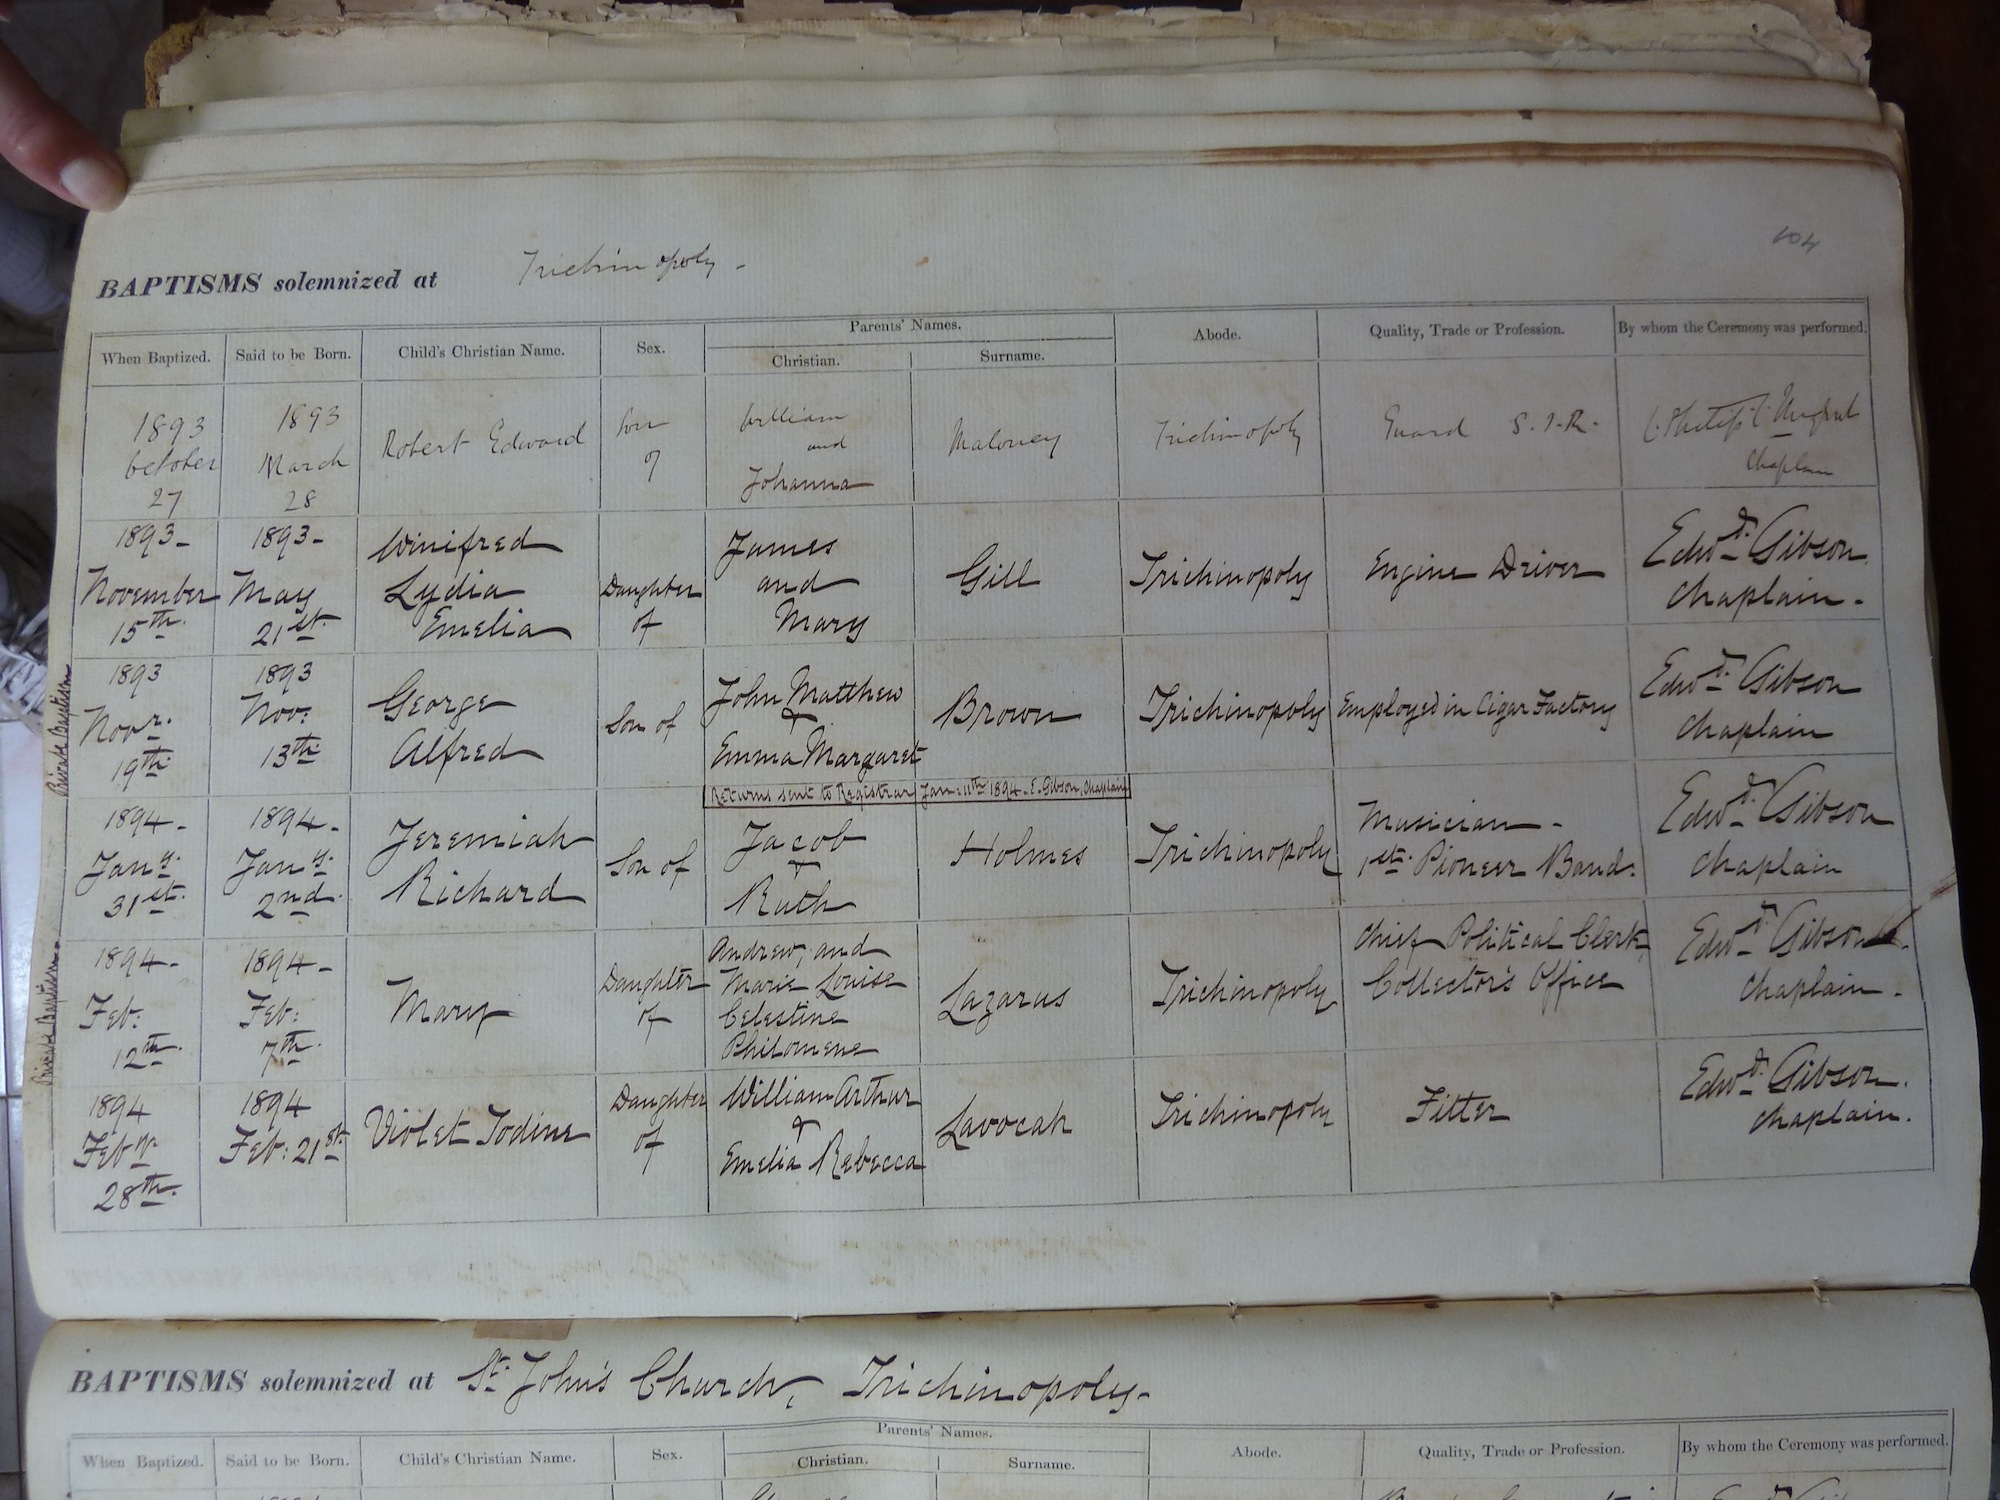 104
BAPTISMS solemnized at Trichinopoly -
Parents' Names.
When Baptized. Said to be Born. Child's Christian Name. Sex. Christian. Surname. Abode. Quality, Trade or Profession. By whom the Ceremony was performed.
1893 October 27
1893 March 28
Robert Edward
Son of
William
and
Johanna
Maloney
Trichinopoly
Guard S.I.R.
Chaplain
1893-
November
15th.
1893-
May
21st.
Winifred
Lydia
Emelia
Daughter
of
James
and
Mary
Gill
Trichinopoly
Engine Driver
Edwd. Gibson
Chaplain -
Private Baptism
1893
Novr.
19th.
1893
Nov:
13th.
George
Alfred
Son of
John Matthew
&
Emma Margaret
Brown
Trichinopoly
Employed in Cigar Factory
Edwd. Gibson
Chaplain
Returns sent to Registrar Jan: 11th 1894 - E. Gibson, Chaplain
1894-
Jany.
31st.
1894-
Jany.
2nd.
Jeremiah
Richard
Son of
Jacob
&
Ruth
Holmes
Trichinopoly
Musician -
1st. Pioneer Band.
Edwd. Gibson
Chaplain
Private Baptism-
1894-
Feb:
12th.
1894-
Feb:
7th.
Mary
Daughter
of
Andrew, and
Marie Louise
Celestine
Philomene
Lazarus
Trichinopoly
Chief Political Clerk,
Collector's Office
Edwd. Gibson.
Chaplain.
1894
Feby.
28th.
1894
Feb: 21st.
Violet Iodine
Daughter
of
William Arthur
&
Emelia Rebecca
Lavocah
Trichinopoly
Fitter
Edwd. Gibson.
Chaplain.
BAPTISMS solemnized at St. John's Church, Trichinopoly-
Parents' Names.
When Baptized. Said to be Born. Child's Christian Name. Sex. Christian. Surname. Abode. Quality, Trade or Profession. By whom the Ceremony was performed.